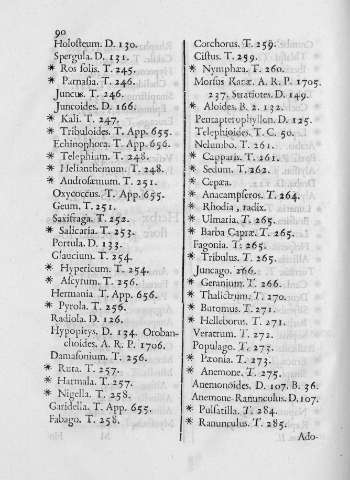 90
Holosteum. D. 130.
Spergula. D. 131.
* Ros solis. T. 245.
* Parnasia. T. 246.
Juncus. T. 246.
Juncoides. D. 166.
* Kali. T. 247.
* Tribuloides. T. App. 655.
Echinophora. T. App. 656.
* Telephium. T. 248.
* Helianthemum. T. 248.
* Androsæmum. T. 251.
Oxycoccus. T. App. 655.
Geum. T. 251.
Saxifraga. T. 252.
* Salicaria. T. 253.
Portula. D. 133.
Glaucium. T. 254.
* Hypericum. T. 254.
* Ascyrum. T. 256.
Hermania T. App. 656.
* Pyrola. T. 256.
Radiola. D. 126.
Hypopitys. D. 134. Oroban-
choides. A. R. P. 1706.
Damasonium. T. 256.
* Ruta. T. 257.
* Harmala. T. 257.
* Nigella. T. 258.
Garidella. T. App. 655.
Fabago. T. 258.
Corchorus. T. 259.
Cistus. T. 259.
* Nymphæa. T. 260.
Morsus Ranæ. A. R. P. 1705.
237. Stratiotes. D. 149.
* Aloides. B. 2. 132.
Pentapterophyllon. D. 125.
Telephioides. T. C. 50.
Nelumbo. T. 261.
* Capparis. T. 261.
* Sedum. T. 262.
* Cepæa.
* Anacampseros. T. 264.
* Rhodia, radix.
* Ulmaria. T. 265.
* Barba Capræ. T. 265.
Fagonia. T. 265.
* Tribulus. T. 265.
Juncago. 266.
* Geranium. T. 266.
* Thalictrum. T. 270.
* Butomus. T. 271.
* Helleborus. T. 271.
Veratrum. T. 272.
Populago. T. 273.
* Pæonia. T. 273.
* Anemone. T. 275.
Anemonoides. D. 107. B. 36.
Anemone-Ranunculus. D. 107.
* Pulsatilla. T. 284.
* Ranunculus. T. 285.
Ado-